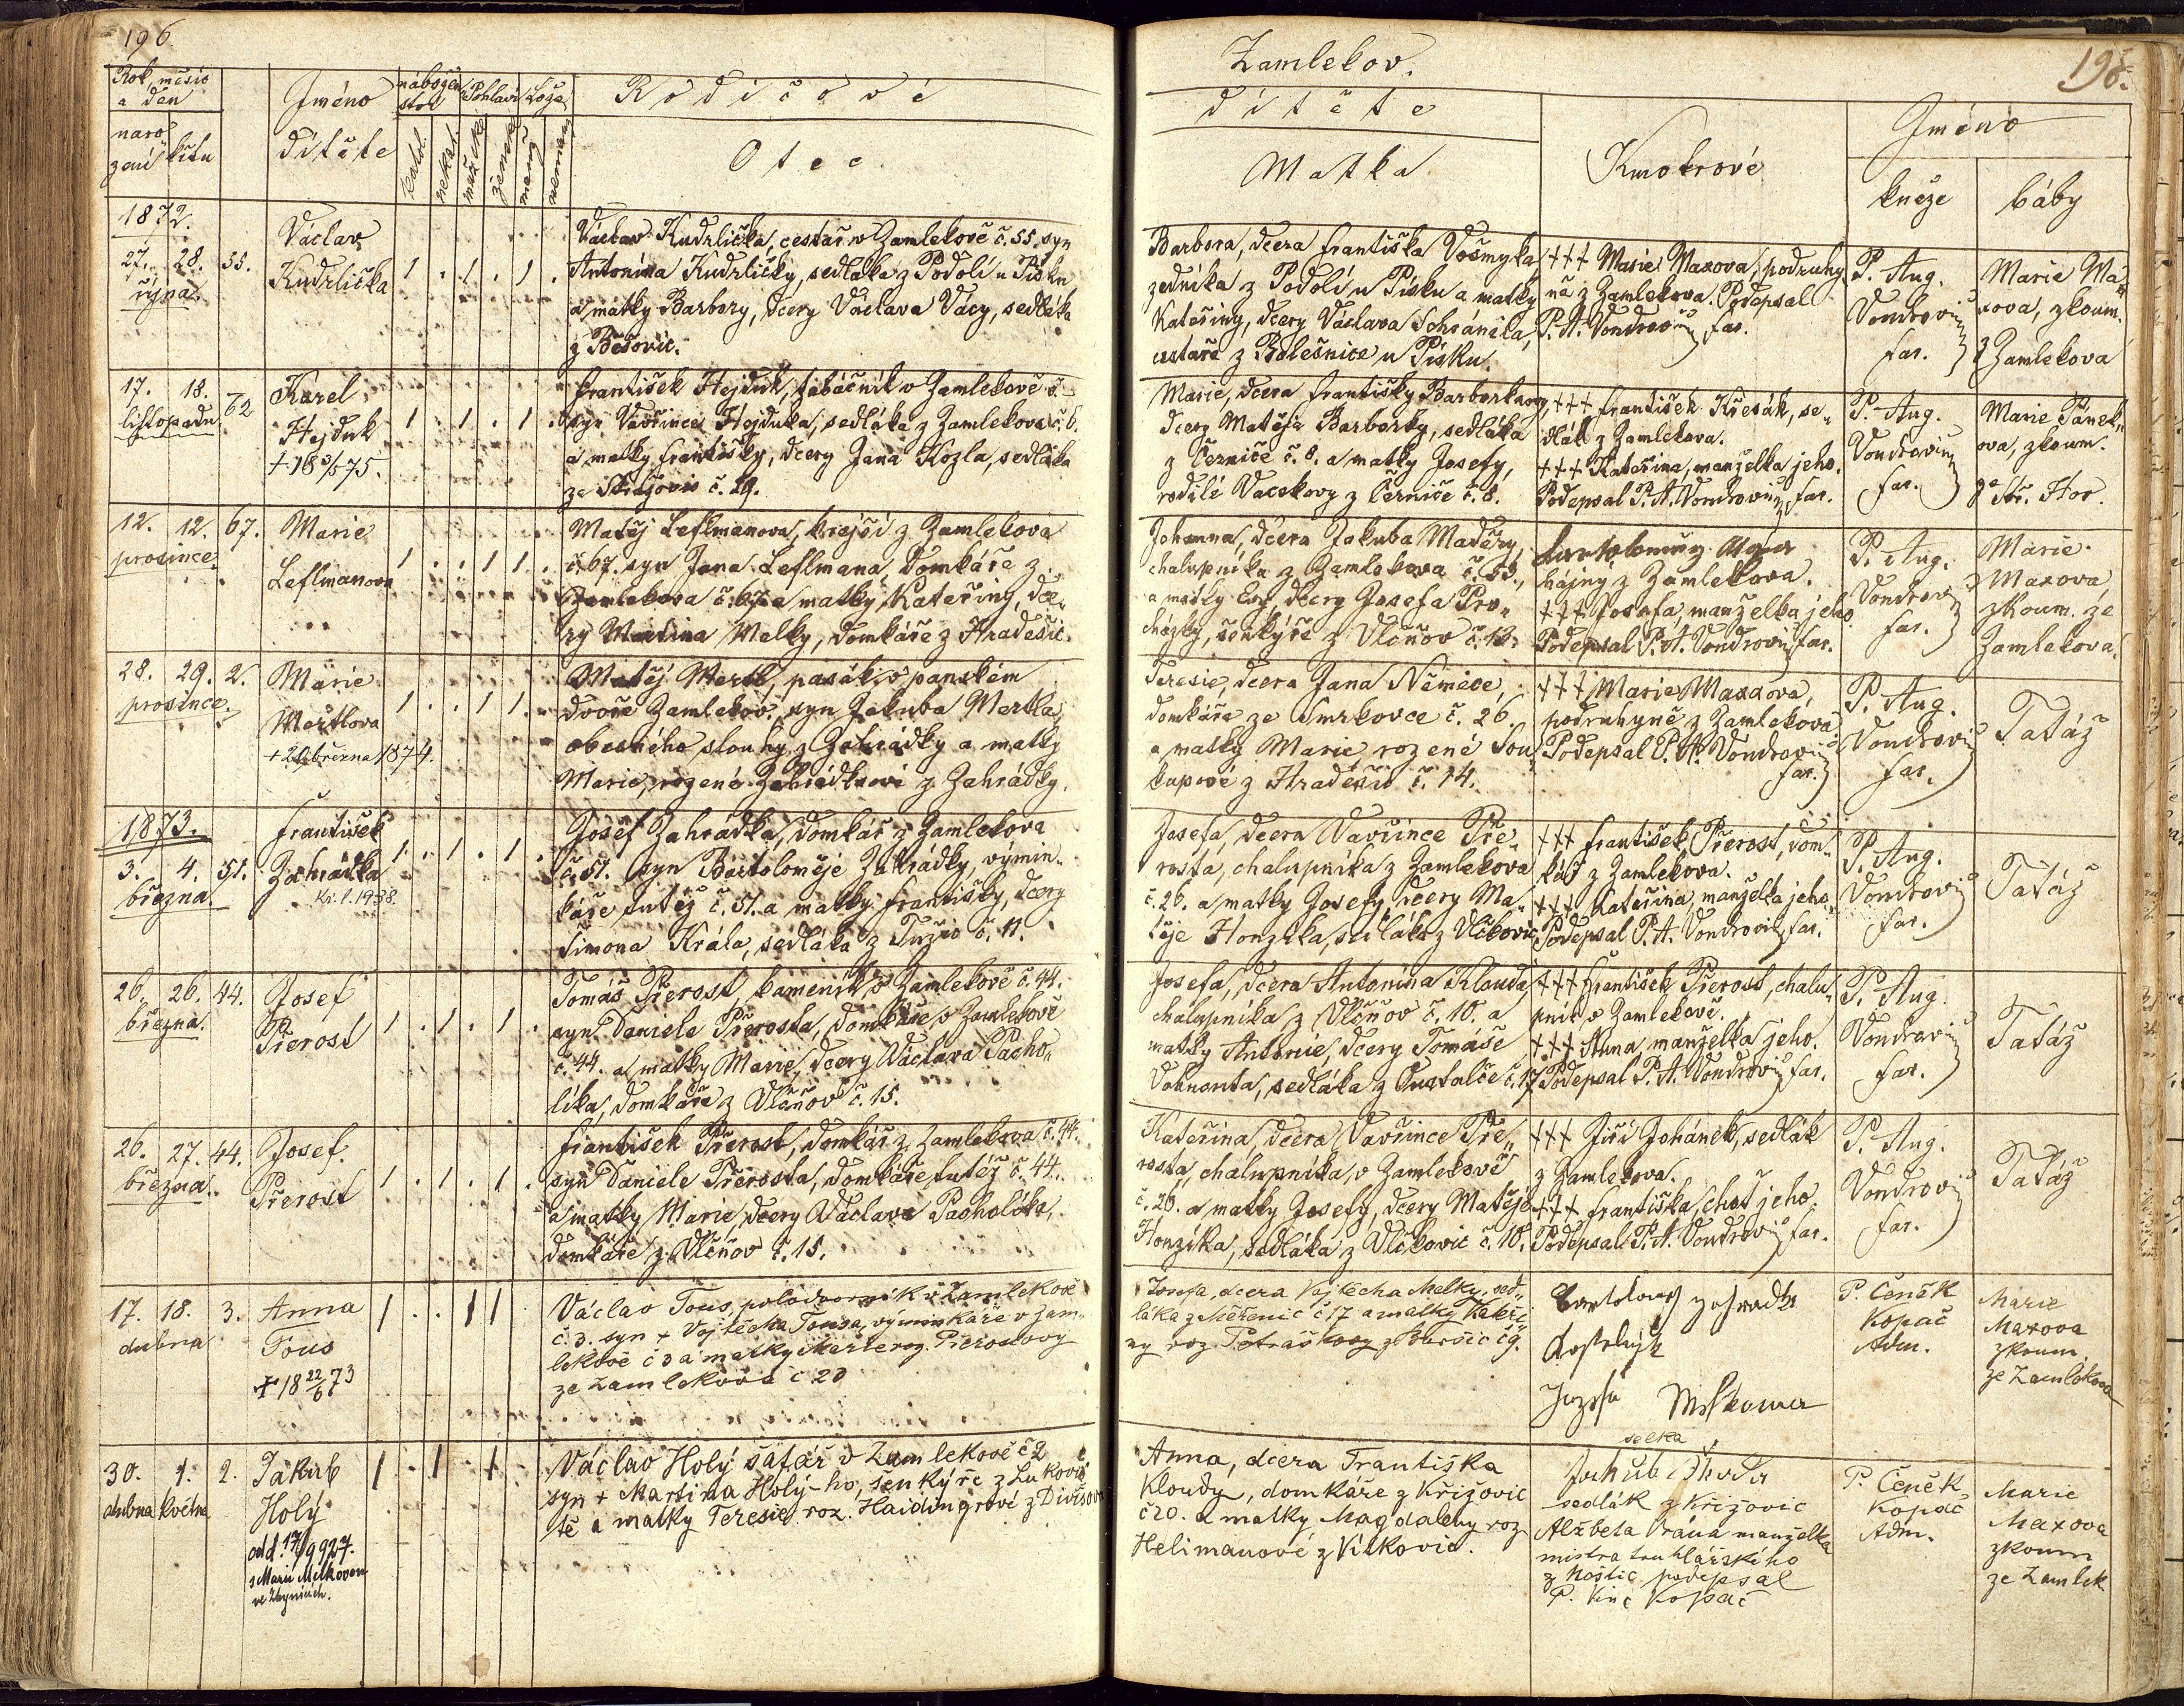 196.
Rok, měsíc
a den
naro
zení
křtu
Jméno
dítěte
nábožen
ství
Pohlaví
Lože
katol.
nekat.
mužské
ženské
manž.
neman.
Rodičové
Otec
1872.
27. 28. 55.
října
Václav
Kudrlička
1 . 1 . 1 .
Václav Kudrlička, cestář v Zamlekově č. 55. syn
Antonína Kudrličky, sedláka z Podolí u Písku
a matky Barbory, dcery Václava Vácy, sedláka
z Bošovic.
17. 18. 62
listopadu
Karel
Hejduk
+ 18 75.
1 . 1 . 1 .
František Hejduk, tabáčník v Zamlekově č.
syn Vavřince Hejduka, sedláka z Zamlekova č. 6.
a matky Františky, dcery Jana Kozla, sedláka
ze č. 29.
12. 12. 67.
prosince
Marie
Leflmanova
1 . . 1 1 .
Matěj Leflmanova, krejčí z Zamlekova
č. 67. syn Jana Leflmana domkáře z
Zamlekova č. 67 a matky Kateřiny, dce„
ry Martina Melky, domkáře z Hradešic.
28. 29. 2.
prosince
Marie
Mertlova
+ 20 března 1874.
1 . . 1 1 .
Matěj Mertl, pasák v panském
dvoře Zamlekov. syn Jakuba Mertla,
obecného slouhy z Zahrádky a matky
Marie, rozené Zahrádkové z Zahrádky.
1873.
3. 4. 51.
března
František
Zahrádka
1 . 1 . 1 .
Josef Zahrádka, domkář z Zamlekova
č. 51. syn Bartoloměje Zahrádky, výmin„
káře tutéž č. 51. a matky Františky, dcery
Šimona Krále, sedláka z Tužic č. 11.
26. 26. 44.
března.
Josef
Přerost
1 . 1 . 1 .
Tomáš Přerost, kameník v Zamlekově č. 44.
syn Daniele Přerosta, domkáře v Zamlekově
č. 44. a matky Marie, dcery Václava Pacho„
líka, domkáře z Vlčňov č. 15.
26. 27. 44.
března.
Josef.
Přerost
1 . 1 . 1 .
František Přerost, domkář z Zamlekova č. 44.
syn Daniele Přerosta, domkáře tutéž č. 44.
a matky Marie, dcery Václava Pacholíka,
domkáře z Vlčňov č. 15.
17. 18. 3.
dubna
Anna
Fous
+ 18 22/6 73
1 . . 1 1
Václav Fous, polodvorník v Zamlekově
č. 3. syn + Vojtěcha Fousa, výminkáře v Zam„
lekově č 3 a matky Marie roz. Přerostovy
ze Zamlekova č 20
30. 1. 2.
dubna května
Jakub
Holý
odd. 17/9 927.
s Marií Melkovou
ve Zbynicích.
1 . 1 . 1
Václav Holý šafář v Zamlekově č 2
syn + Martina Holý-ho, šenkýře z Lukovic
a matky Teresie roz. Haidingrové z Divišova
Zamlekov.
198.
dítěte
Matka
Kmotrové
Jméno
kněze
báby
Barbora, dcera Františka Vošmyka
zedníka z Podolí u Písku a matky
Kateřiny, dcery Václava Schánila,
cestáře z Walešnice u Písku.
+++ Marie Maxova, podruhy
ně z Zamlekova. Podepsal
P. A. Vondrovic far.
P. Aug.
Vondrovic
far.
Marie Ma
xova, zkoum.
z Zamlekova
Marie, dcera Františky Barborkovy,
dcery Matěje Barborky, sedláka
z Černíče č. 8. a matky Josefy,
rodilé Vacekovy z Černíče č. 8.
+++ František Křesák, se„
dlák z Zamlekova.
+++ Kateřina, manželka jeho.
Podepsal P. A. Vondrovic far.
P. Aug.
Vondrovic
far.
Marie Pánek„
ova, zkoum.
ze Stř. Hor.
Johanna, dcera Jakuba Maděry,
chalupníka z Zamlekova č. 53,
a matky Evy, dcery Josefa Pro„
cházky, šenkýře z Vlčňov č. 13.
Bartoloměj
hajný z Zamlekova.
+++ Josefa, manželka jeho
Podepsal P. A. Vondrovic far.
P. Aug.
Vondrovic
far.
Marie
Maxova,
zkoum. ze
Zamlekova.
Teresie, dcera Jana Němece,
domkáře ze Smrkovce č. 26.
a matky Marie rozené Sou„
kupové z Hradešic č. 14.
+++ Marie Maxova,
podruhyně z Zamlekova.
Podepsal P. A. Vondrovic
far.
P. Aug.
Vondrovic
far.
Tatáž
Josefa, dcera Vavřince Pře„
rosta, chalupníka z Zamlekova
č. 26. a matky Josefy, dcery Ma„
těje Honzíka, sedláka z Vlčkovic
+++ František Přerost, dom„
kář z Zamlekova.
+++ Kateřina, manželka jeho.
Podepsal P. A. Vondrovic far.
P. Aug.
Vondrovic
far.
Tatáž
Josefa, dcera Antonína Klouda,
chalupníka z Vlčňov č. 10. a
matky Antonie, dcery Tomáše
Vohnonta, sedláka z č. 17
+++ František Přerost, chalu„
pník v Zamlekově.
+++ Anna manželka jeho.
Podepsal P. A. Vondrovic far.
P. Aug.
Vondrovic
far.
Tatáž
Kateřina, dcera Vavřince Pře„
rosta, chalupníka v Zamlekově
č. 26. a matky Josefy, dcery Matěje
Honzíka, sedláka z Vlčkovic č. 10.
+++ Jiří Johánek, sedlák
z Zamlekova.
+++ Františka, choť jeho.
Podepsal P. A. Vondrovic far.
P. Aug.
Vondrovic
far.
Tatáž
Josefa, dcera Vojtěcha Melky, sed„
láka z Měřenic č 17 a matky Kateři„
ny roz. Petráškovy z č 9.
Bartoloměj Zahradka
Josefa
selka
P. Čeněk
Kopač
Adm.
Marie
Maxova
zkoum.
ze Zamlekova
Anna, dcera Františka
Kloudy, domkáře z Křižovic
č 20. a matky Magdaleny roz
Helimanové z Vítkovic.
Jakub
sedlák z Křižovic
Alžbeta Vráná manželka
mistra truhlářského
z Hoštic podepsal
P. Vinc Kopač
P. Čeněk
Kopač
Adm.
Marie
Maxova
zkoum
ze Zamlek